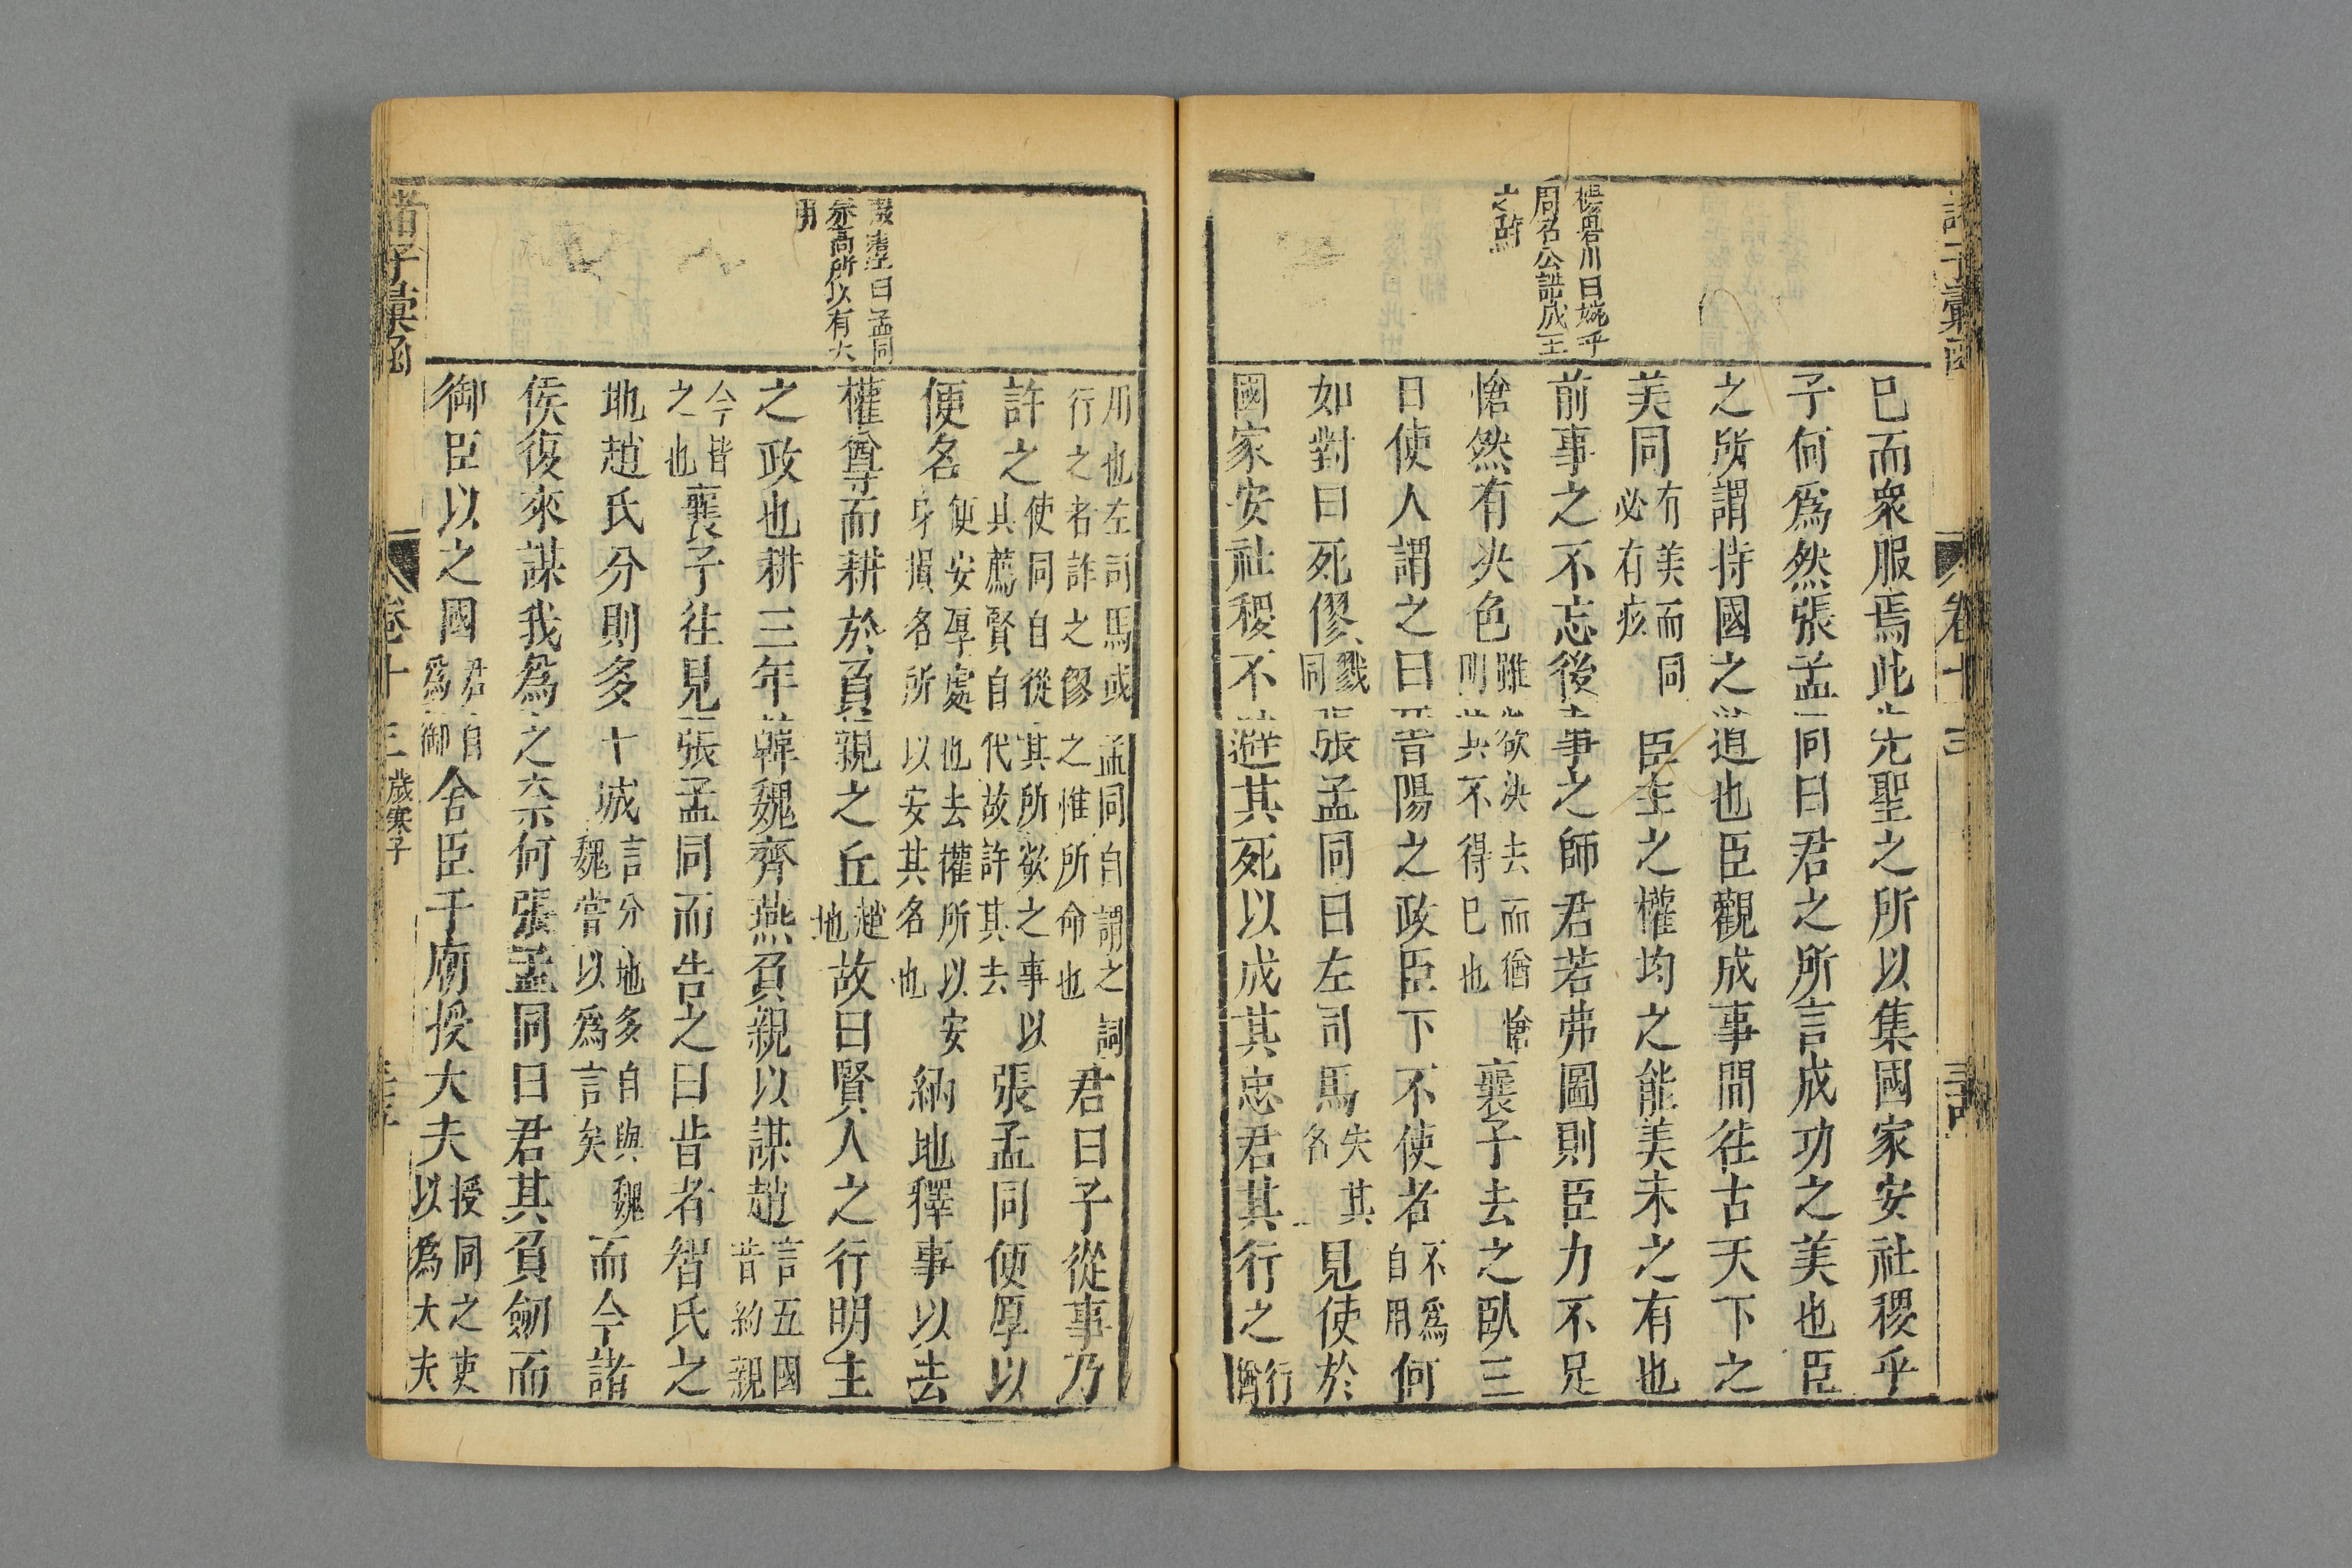 楊碧川曰婉乎
周召公誥成王
之辭
巳而衆服焉此先聖之所以集國家安社稷乎
子何爲然張孟同曰君之所言成功之美也臣
之所謂持國之道也臣觀成事聞徃古天下之
美同有美而同必有亥臣主之權均之能美未之有也
前事之不忘後事之師君若弗圖則臣力不足
愴然有决色雖欲决去而猶愴則其不得巳也襄子去之臥三
日使人謂之曰晉陽之政臣下不使者不爲自用何
如對曰死僇戮同張孟同曰左司馬失其名見使於
國家安社稷不避其死以成其忠君其行之行
諸子彙函
卷十三
曰孟同
高所以有大
用
用也左司馬或行之者詐之僇孟同自謂之詞之惟所命也君曰子從事乃
許之使同自從其所欲之事以其薦賢自代故許其去張孟同便厚以
便名便安厚處也去權所以安身損名所以安其名也納地釋事以去
權尊而耕於負親之丘趙地故曰賢人之行明主
之政也耕三年韓魏齊燕負親以謀趙言五國昔約親
今皆之也襄子往見張孟同而告之曰昔者智氏之
地趙氏分則多十城言分地多自與魏魏嘗以爲言矣而今諸
侯復來謀我爲之奈何張孟同曰君其負劒而
御臣以之國君自爲御舍臣于廟授大夫授同之吏以爲大夫
諸子彙函
卷十三
歲寒子